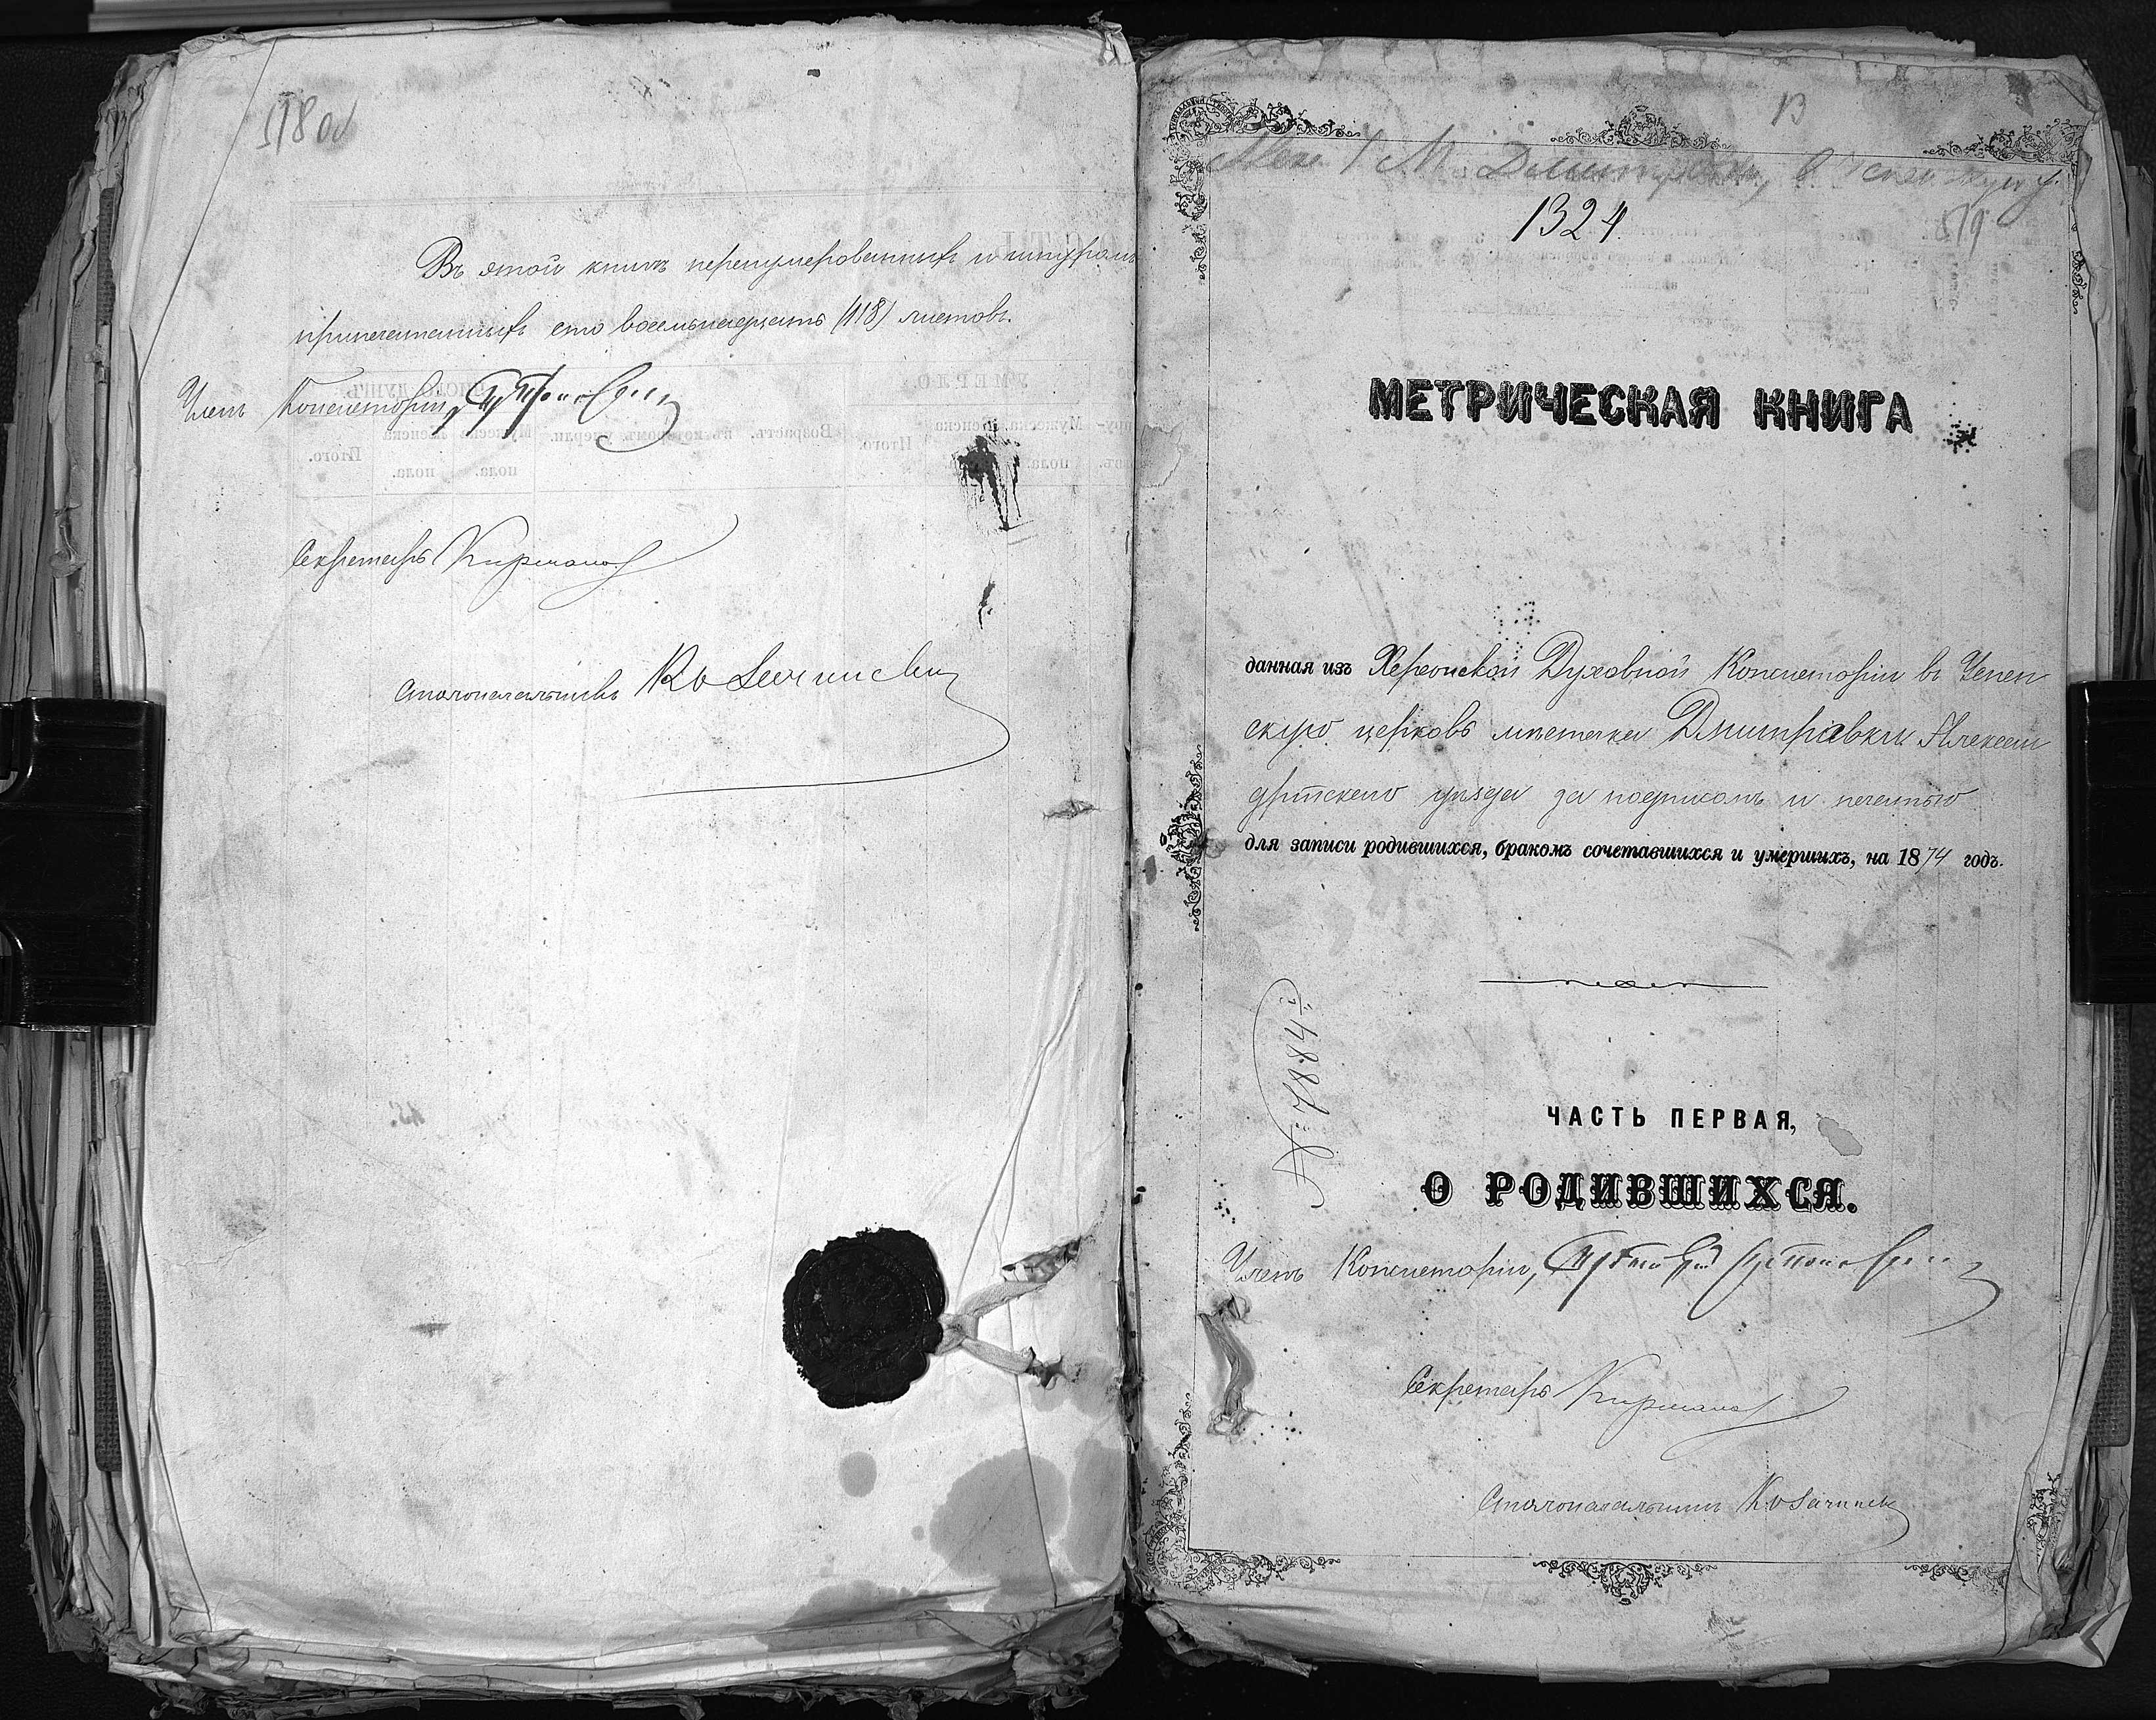 118 об
Въ этой книгѣ перенумерованныхъ и шнуромъ
припечатанныхъ сто восемьнадцать (118) листовъ.
Членъ Консисторіи,
Секретарь
Столоначальникъ
13
1324.
119
МЕТРИЧЕСКАЯ КНИГА
данная изъ Херсонской Духовной Консисторіи въ Успен
скую церковь мѣстечка Дмитровки Алексан
дрійскаго уѣзда за подписомъ и печатью
для записи родившихся, бракомъ сочетавшихся и умершихъ, на 1874 годъ.
№ 7884
ЧАСТЬ ПЕРВАЯ,
О РОДИВШИХСЯ.
Членъ Консисторіи,
Секретарь
Столоначальникъ